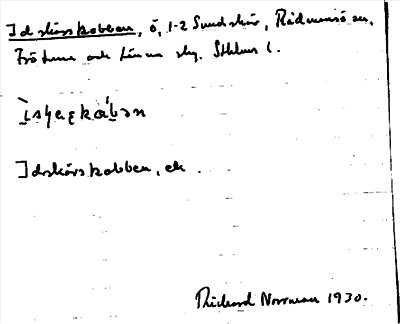 Idskärskobben, ö, 1-2 Sundskär, Rådmansö sn,
Frötuna och Länna skg. Sthlms l.
Idskärskobben, ek.
Rickard Norrman 1930.